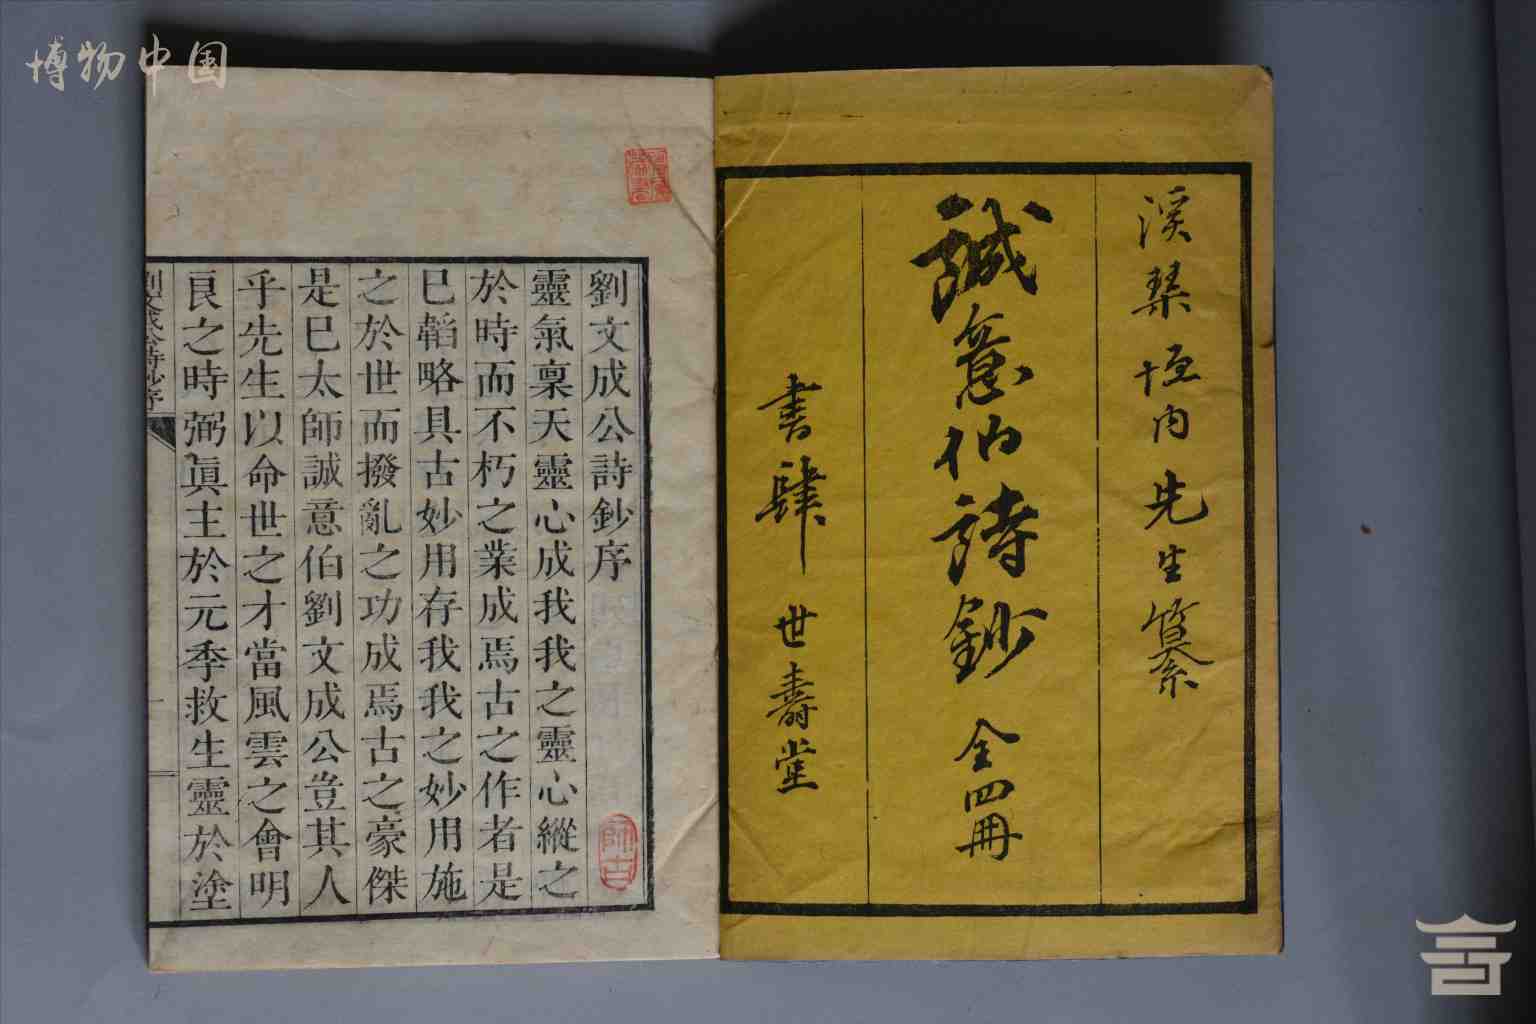 博物中国
溪琴垣内先生纂
誠意伯詩鈔 全四冊
書肆 世壽堂
劉文成公詩鈔序
靈氣稟天靈心成我我之靈心縱之
於時而不朽之業成焉古之作者是
巳韜略具古妙用存我我之妙用施
之於世而撥亂之功成焉古之豪傑
是巳太師誠意伯劉文成公豈其人
乎先生以命世之才當風雲之會明
良之時弼眞主於元季救生靈於塗
劉文成公詩鈔序
一
師古